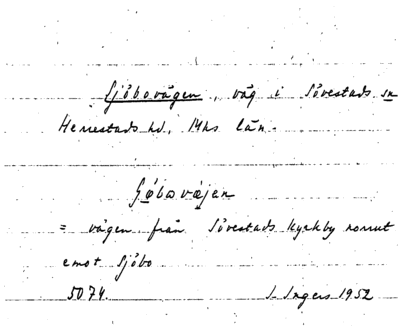 Sjöbovägen, väg i Sövestads sn
Herrestads hd, Mhs län.
Söbovæjen
= vägen från Sövestads kyrkby norrut
emot Sjöbo
5074. I. Ingers 1952